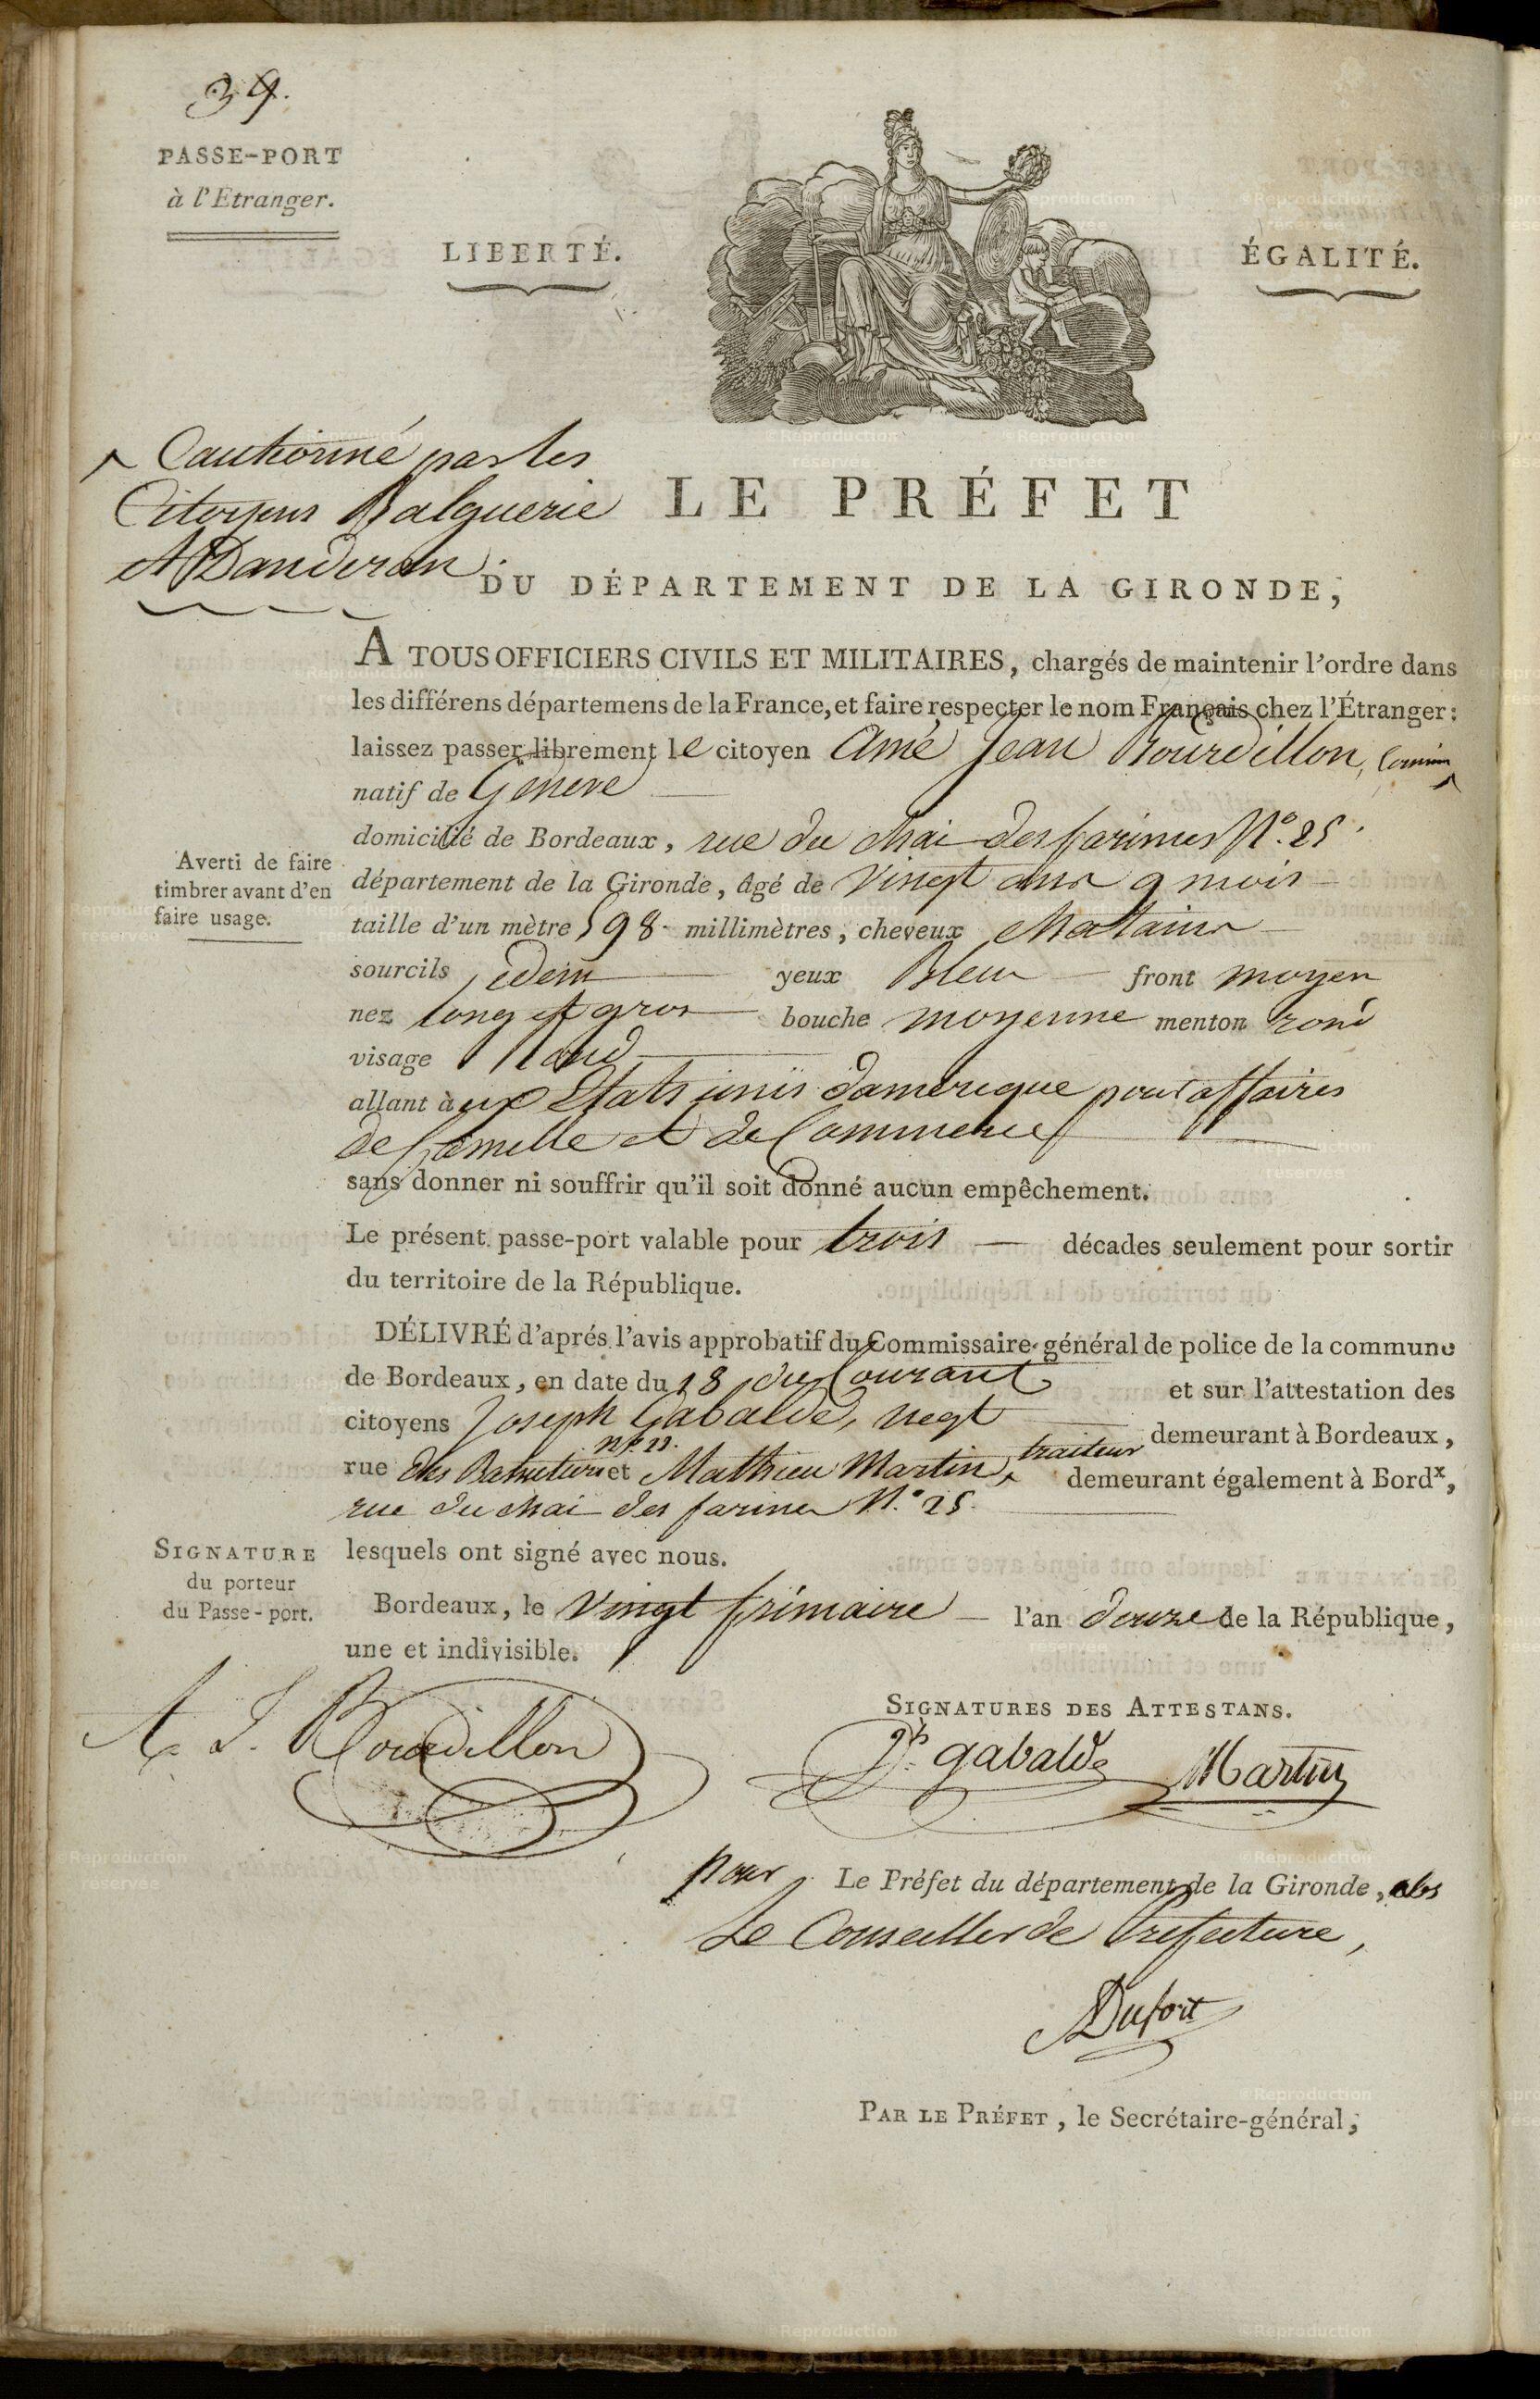 39.
PASSE-PORT
à l'Etranger.
LIBERTÉ.
ÉGALITÉ.
Cautionné par les
Citoyens Balguerie
et Danderan.
LE PRÉFET
DU DÉPARTEMENT DE LA GIRONDE,
A TOUS OFFICIERS CIVILS ET MILITAIRES, chargés de maintenir l'ordre dans
les différens départemens de la France, et faire respecter le nom Français chez l'Étranger :
laissez passer librement le citoyen Amé Jean Bourdillon,
natif de Geneve
domicilié de Bordeaux, rue du Chai des farines N.° 25.
Averti de faire
timbrer avant d'en
faire usage.
département de la Gironde, âgé de Vingt ans 9 mois
taille d'un mètre 598 millimètres, cheveux chatains
sourcils idem yeux Bleux front moyen
nez long et gros bouche moyenne menton rond
visage rond
allant à ux Etats unis damerique pour affaires
de famille et de Commerce
sans donner ni souffrir qu'il soit donné aucun empêchement.
Le présent passe-port valable pour trois décades seulement pour sortir
du territoire de la République.
DÉLIVRÉ d'aprés l'avis approbatif du Commissaire-général de police de la commune
de Bordeaux, en date du 18 du Courant et sur l'attestation des
citoyens Joseph Gabalde, negt demeurant à Bordeaux,
rue des et Mathieu Martin, traiteur demeurant également à Bordx,
rue du chai des farines N.° 25.
lesquels ont signé avec nous.
SIGNATURE
du porteur
du Passe-port.
Bordeaux, le Vingt frimaire l'an douze de la République,
une et indivisible.
A. J. Bourdillon
SIGNATURES DES ATTESTANS.
Jh gabalde Martin
pour Le Préfet du département de la Gironde, abs
Le Conseiller de Prefecture,
Dufort
PAR LE PRÉFET, le Secrétaire-général,
©Reproduction
réservée